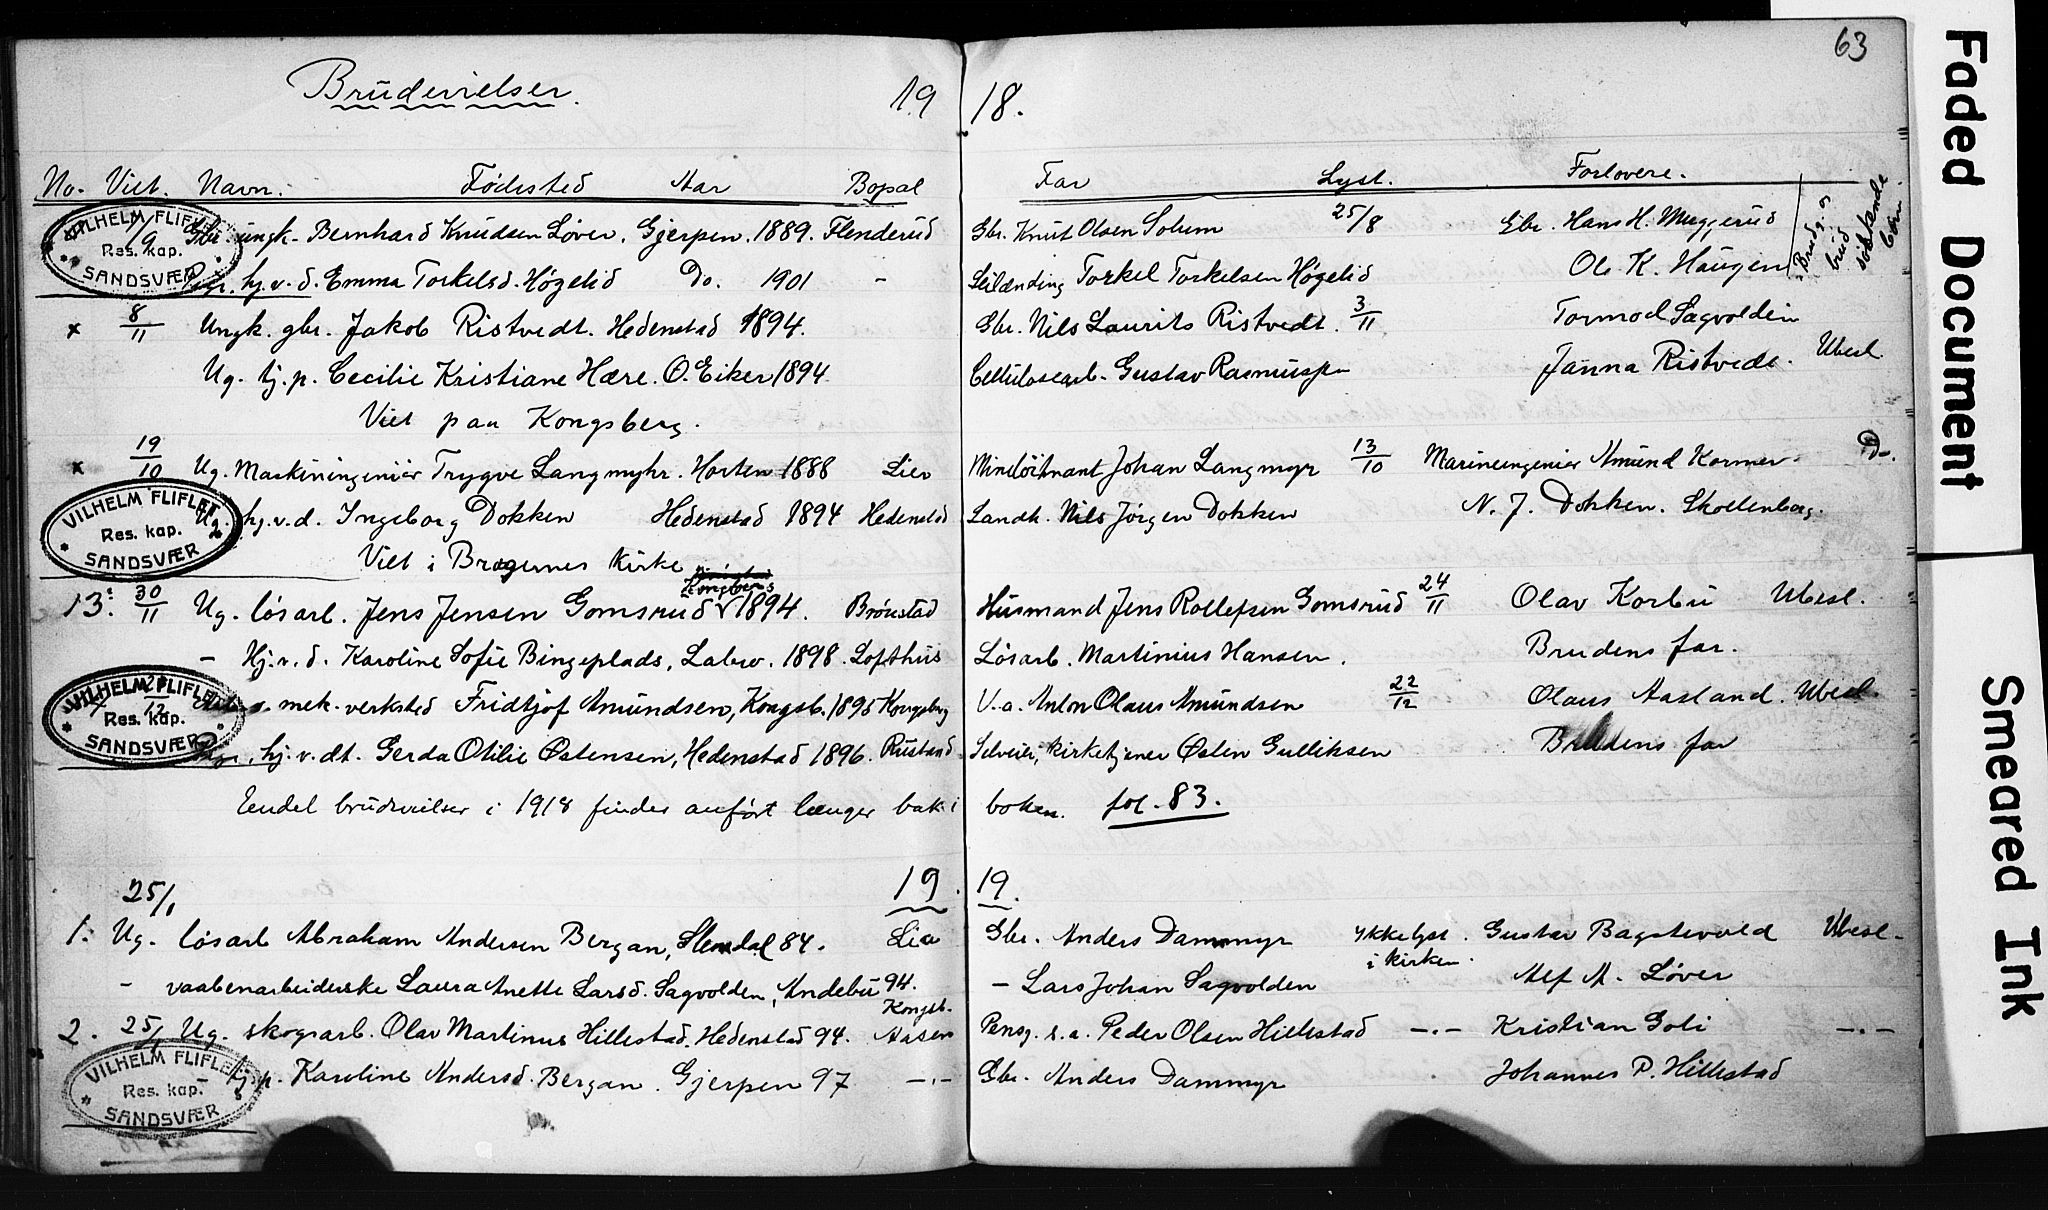 63
Brudevielser. 19 18.
No. Viet. Navn. Fødested Aar Bopæl Far Lyst. Forlovere.
VILHELM FLIFLET
Res. kap.
SANDSVÆR
/9 Gbr. ungk. Bernhard Knudsen Løver. Gjerpen. 1889. Flenderud Gbr. Knut Olsen Solum 25/8 Gbr. Hans H. Muggerud
Brudg. og brud søskende børn.
Pgr. hj.v.d. Emma Torkelsd. Høgelid Do. 1901 - Torkel Torkelsen Høgelid Ole K. Haugen
x 8/11 Ungk. gbr. Jakob Ristvedt. Hedenstad 1894. Gbr. Nils Laurits Ristvedt. 3/11 Tormod Sagvolden
Ug. tj.p. Cecilie Kristiane Hære. O. Eiker 1894 Cellulosearb. Gustav Rasmussen Janna Ristvedt. Ubesl.
Viet paa Kongsberg.
x 19/10 Ug. Maskiningeniør Trygve Langmyhr. Horten 1888 Lier Mineløitnant Johan Langmyr 13/10 Marineingeniør Amund Kormer. Do-.
VILHELM FLIFLET
Res. kap.
SANDSVÆR
Ug. hj.v.d. Ingeborg Dokken Hedenstad 1894 Hedenstad Landh. Nils Jørgen Dokken N. J. Dokken. Skollenborg.
Viet i Bragernes Kirke
Kongsberg
13. 30/11 Ug. løsarb. Jens Jensen Gomsrud 1894. Brønstad Husmand Jens Rollefsen Gomsrud 24/11 Olav Korbu Ubesl.
- Hj.v.d. Karoline Sofie Bingeplads, Labro. 1898. Lofthus Løsarb. Martinius Hansen. Brudens far.
VILHELM FLIFLET
Res. kap.
SANDSVÆR
mek. verksted Fridtjof Amundsen, Kongsb. 1895 Kongsberg V.a. Anton Olaus Amundsen 22/12 Olaus Aasland. Ubesl.
Pgr. hj.v.dt. Gerda Otilie Østensen, Hedenstad 1896. Rustand Selveier, kirketjener Østen Gulliksen Brudens far
Endel brudevielser i 1918 findes anført længer bak i boken. fol. 83.
19. 19.
25/1
1. Ug. løsarb Abraham Andersen Bergan, Slemdal 84. Lia Gbr. Anders Dammyr Ikke lyst i kirken. Gustav Bagstevold Ubesl.
- vaabenarbeiderske Laura Anette Larsd. Sagvolden, Andebu 94. Kongsb. - Lars Johan Sagvolden Alf A. Løver
2. 25/1 Ug. skogsarb. Olav Martinus Hillestad. Hedenstad 94. Aasen Pensj. s.a. Peder Olsen Hillestad -.- Kristian Goli -.-
VILHELM FLIFLET
Res. kap.
SANDSVÆR
tj.p. Karoline Andersd. Bergan. Gjerpen 97 -.- Gbr. Anders Dammyr Johannes P. Hillestad
Faded Document
Smeared Ink